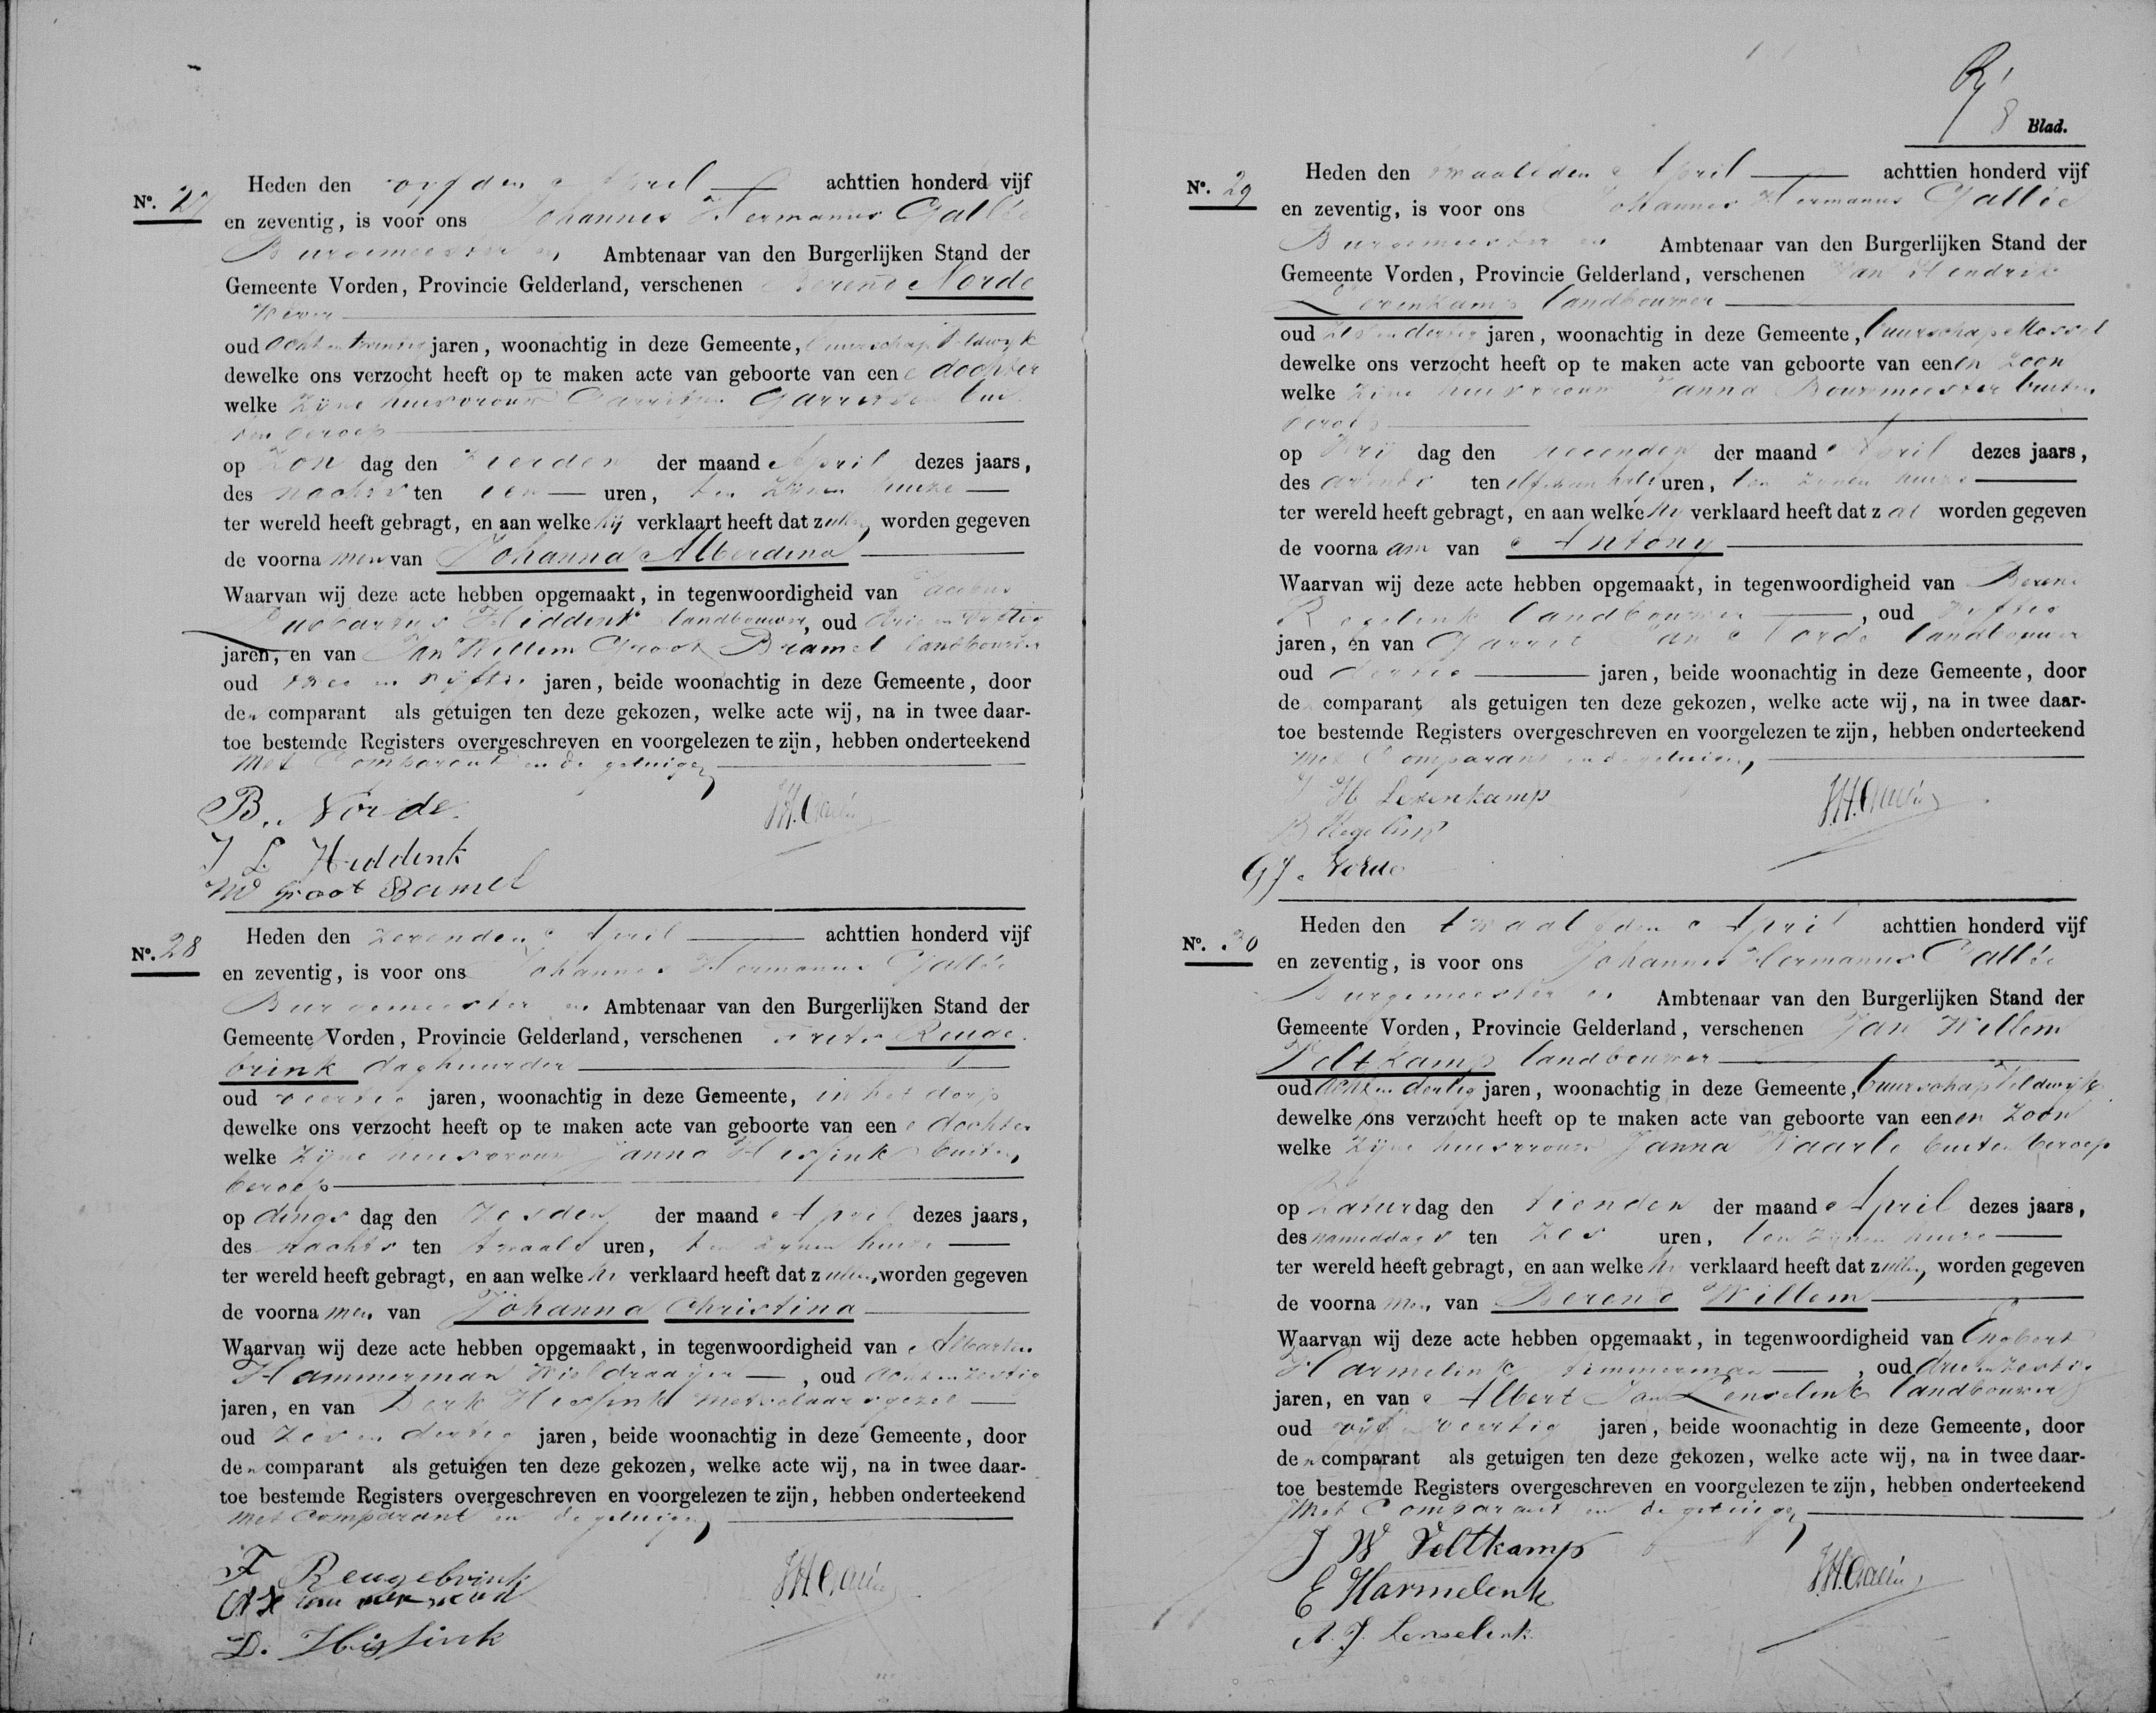 No. 27
Heden den vijfden April achttien honderd vijf
en zeventig, is voor ons Johannes Hermanus Gallée
Burgemeester en Ambtenaar van den Burgerlijken Stand der
Gemeente Vorden, Provincie Gelderland, verschenen Berend Norde
Wever
oud acht en twintig jaren, woonachtig in deze Gemeente, buurschap Veldwijk
dewelke ons verzocht heeft op te maken acte van geboorte van eene dochter
welke zijne huisvrouw Garritjen Garretsen bui
ten beroep
op Zon dag den vierden der maand April dezes jaars,
des nachts ten een uren, ten zijnen huize
ter wereld heeft gebragt, en aan welke hij verklaart heeft dat zullen worden gegeven
de voornamen van Johanna Alberdina
Waarvan wij deze acte hebben opgemaakt, in tegenwoordigheid van Jacobus
Hiddink landbouwer, oud drie en vijftig
jaren, en van Jan Willem Groot Bramel landbouwer
oud twee en vijftig jaren, beide woonachtig in deze Gemeente, door
den comparant als getuigen ten deze gekozen, welke acte wij, na in twee daar-
toe bestemde Registers overgeschreven en voorgelezen te zijn, hebben onderteekend
met Comparant en de getuigen,
B. Norde.
JHGallée
J L Hiddink
JW Groot Bramel
No. 28
Heden den zevenden April achttien honderd vijf
en zeventig, is voor ons Johannes Hermanus Gallée
Burgemeester en Ambtenaar van den Burgerlijken Stand der
Gemeente Vorden, Provincie Gelderland, verschenen Frits Reuge
brink daghuurder
oud veertig jaren, woonachtig in deze Gemeente, in het dorp
dewelke ons verzocht heeft op te maken acte van geboorte van eene dochter
welke zijne huisvrouw Janna Hissink buiten
beroep
op dings dag den zesden der maand April dezes jaars,
des nachts ten twaalf uren, ten zijnen huize
ter wereld heeft gebragt, en aan welke hij verklaard heeft dat zullen worden gegeven
de voornamen van Johanna Christina
Waarvan wij deze acte hebben opgemaakt, in tegenwoordigheid van Albartus
Hammerman Wieldraaijer, oud acht en zestig
jaren, en van Derk Hissink metselaarsgezel
oud zes en dertig jaren, beide woonachtig in deze Gemeente, door
den comparant als getuigen ten deze gekozen, welke acte wij, na in twee daar-
toe bestemde Registers overgeschreven en voorgelezen te zijn, hebben onderteekend
met Comparant en de getuigen,
F Reugebrink
JHGallée
A Hammerman
D. Hissink
8 Blad.
No. 29
Heden den twaalfden April achttien honderd vijf
en zeventig, is voor ons Johannes Hermanus Gallée
Burgemeester en Ambtenaar van den Burgerlijken Stand der
Gemeente Vorden, Provincie Gelderland, verschenen Jan Hendrik
Levenkamp landbouwer
oud zes en dertig jaren, woonachtig in deze Gemeente, buurschap Mossel
dewelke ons verzocht heeft op te maken acte van geboorte van eenen zoon
welke zijne huisvrouw Janna Bouwmeester buiten
beroep
op Vrij dag den negenden der maand April dezes jaars,
des avonds ten elf een half uren, ten zijnen huize
ter wereld heeft gebragt, en aan welke hij verklaard heeft dat zal worden gegeven
de voornaam van Antony
Waarvan wij deze acte hebben opgemaakt, in tegenwoordigheid van Berend
Regelink landbouwer, oud vijftig
jaren, en van Garrit Jan Norde landbouwer
oud dertig jaren, beide woonachtig in deze Gemeente, door
de comparant als getuigen ten deze gekozen, welke acte wij, na in twee daar-
toe bestemde Registers overgeschreven en voorgelezen te zijn, hebben onderteekend
met Comparant en de getuigen,
J H Levenkamp
JHGallée
B Regelink
GJ. Norde
No. 30
Heden den twaalfden April achttien honderd vijf
en zeventig, is voor ons Johannes Hermanus Gallée
Burgemeester en Ambtenaar van den Burgerlijken Stand der
Gemeente Vorden, Provincie Gelderland, verschenen Jan Willem
Veltkamp landbouwer
oud acht en dertig jaren, woonachtig in deze Gemeente, buurschap Veldwijk
dewelke ons verzocht heeft op te maken acte van geboorte van eenen zoon
welke zijne huisvrouw Janna Waarle buiten beroep
op Zaturdag den tienden der maand April dezes jaars,
des namiddags ten zes uren, ten zijnen huize
ter wereld heeft gebragt, en aan welke hij verklaard heeft dat zullen worden gegeven
de voornamen van Berend Willem
Waarvan wij deze acte hebben opgemaakt, in tegenwoordigheid van Engbert
Harmelink timmerman, oud drie en zestig
jaren, en van Albert Jan Lenselink landbouwer
oud vijf en veertig jaren, beide woonachtig in deze Gemeente, door
den comparant als getuigen ten deze gekozen, welke acte wij, na in twee daar-
toe bestemde Registers overgeschreven en voorgelezen te zijn, hebben onderteekend
met Comparant en de getuigen,
J W Veltkamp
JHGallée
E Harmelink
A. J. Lenselink.